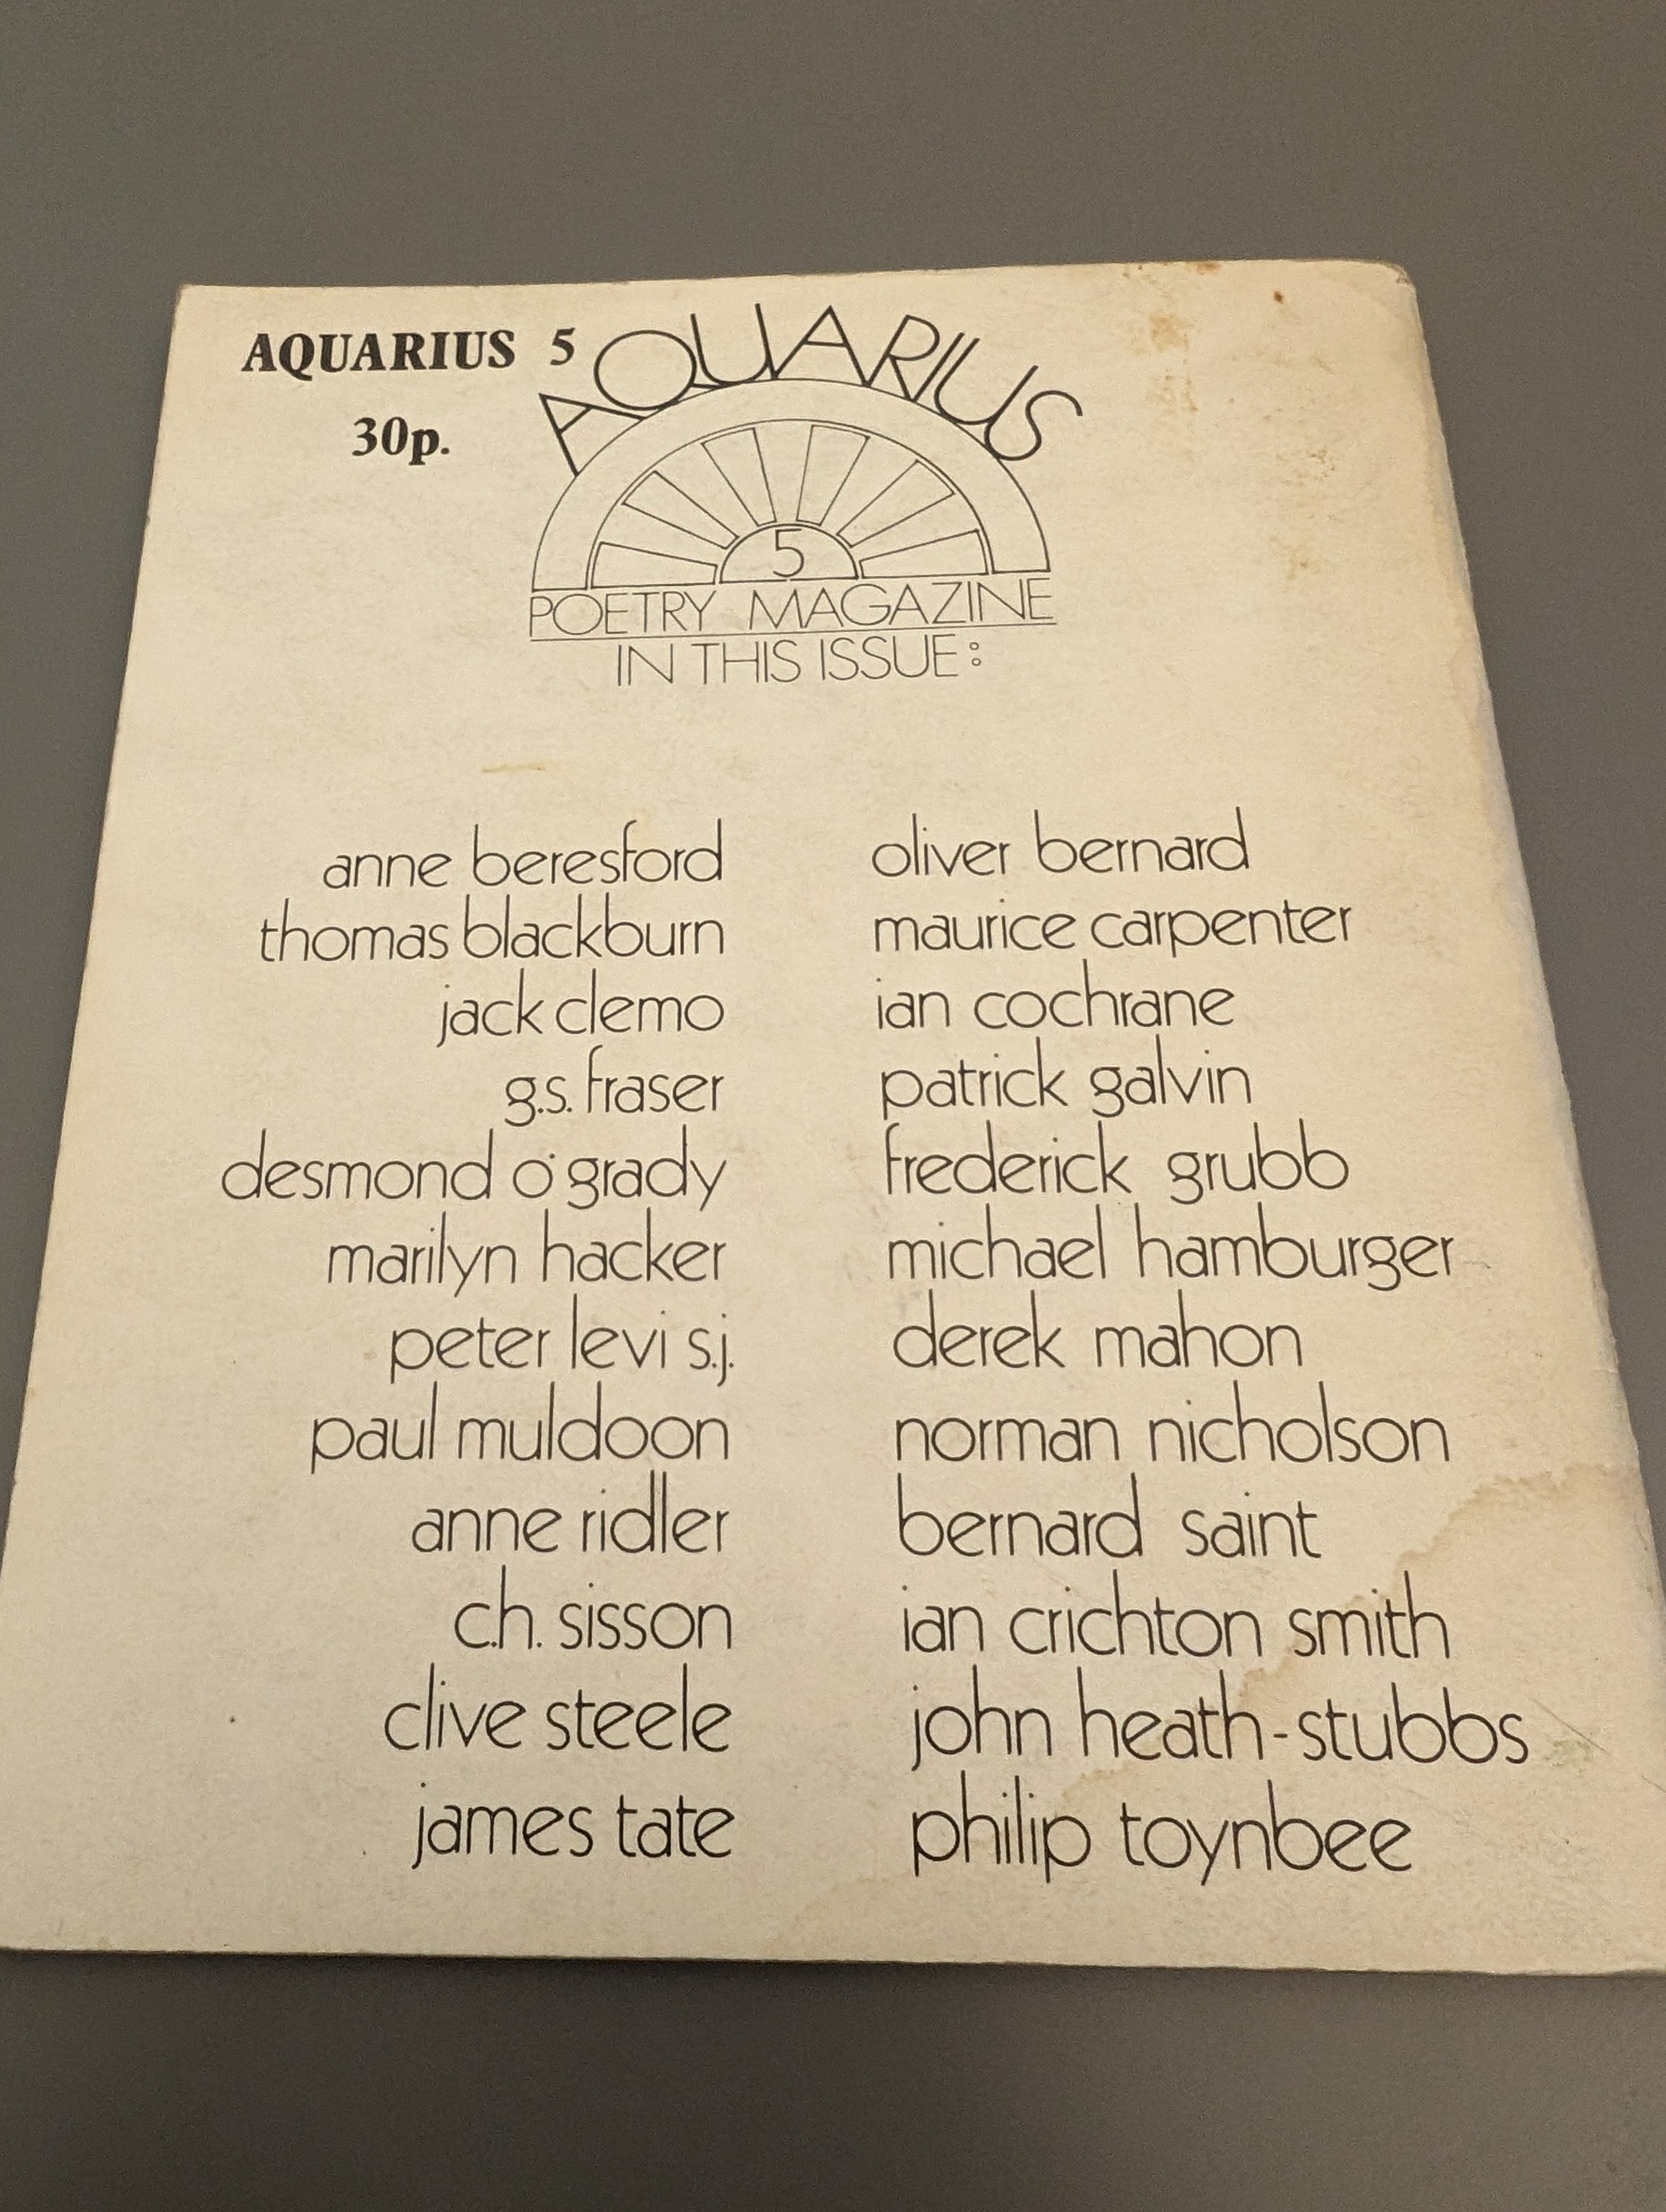 AQUARIUS 5
30p.
AQUARIUS
5
POETRY MAGAZINE
IN THIS ISSUE:
anne beresford
thomas blackburn
jack clemo
g.s. fraser
desmond o'grady
marilyn hacker
peter levi s.j.
paul muldoon
anne ridler
c.h. sisson
clive steele
james tate
oliver bernard
maurice carpenter
ian cochrane
patrick galvin
frederick grubb
michael hamburger
derek mahon
norman nicholson
bernard saint
ian crichton smith
john heath-stubbs
philip toynbee